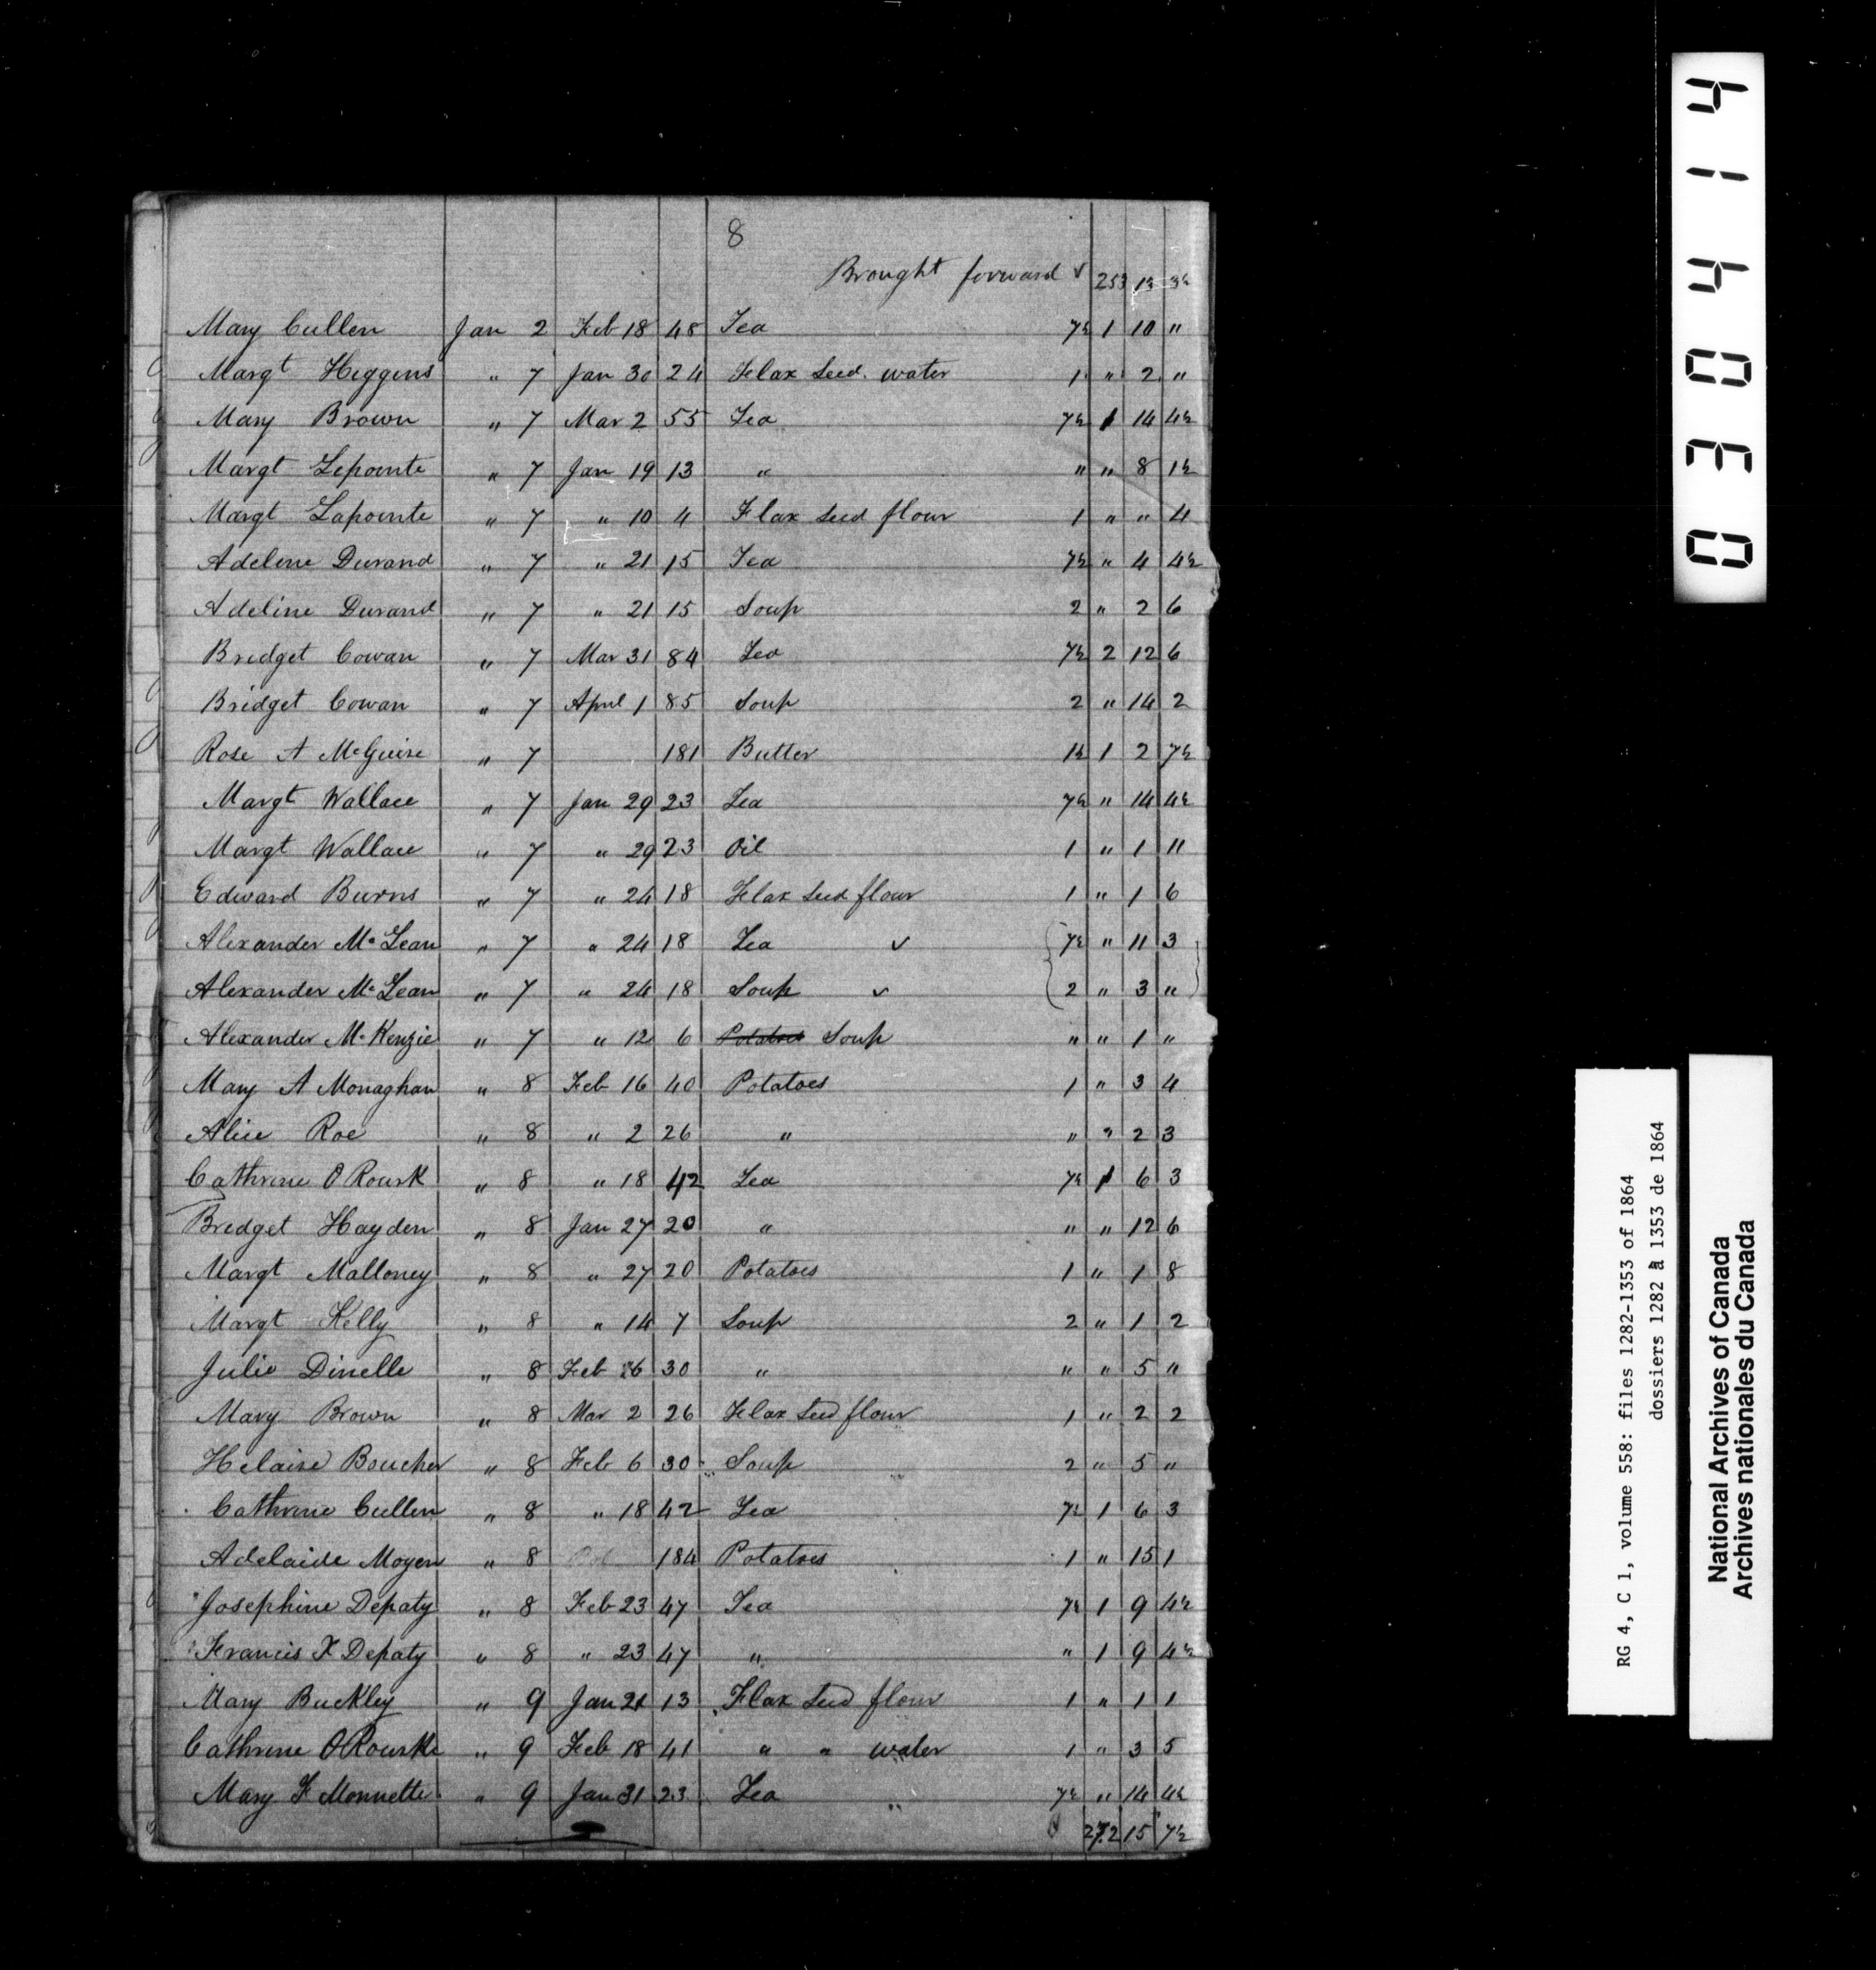 8
Brought forward ✓ 253 13 3½
Mary Cullen Jan 2 Feb 18 48 Tea 7½ 1 10 "
Margt Higgens " 7 Jan 30 24 Flax Seed water 1 " 2 "
Mary Brown " 7 Mar 2 55 Tea 7½ 1 14 4½
Margt Lepointe " 7 Jan 19 13 " " " 8 1½
Margt Lapointe " 7 " 10 4 Flax Seed flour 1 " " 4
Adeline Durand " 7 " 21 15 Tea 7½ " 4 4½
Adeline Durand " 7 " 21 15 Soup 2 " 2 6
Bridget Cowan " 7 Mar 31 84 Tea 7½ 2 12 6
Bridget Cowan " 7 April 1 85 Soup 2 " 14 2
Rose A McGuire " 7 181 Butter 1½ 1 2 7½
Margt Wallace " 7 Jan 29 23 Tea 7½ " 14 4½
Margt Wallace " 7 " 29 23 Oil 1 " 1 11
Edward Burns " 7 " 24 18 Flax Seed flour 1 " 1 6
Alexander McLean " 7 " 24 18 Tea ✓ 7½ " 11 3
Alexander McLean " 7 " 24 18 Soup ✓ 2 " 3 "
Alexander McKenzie " 7 " 12 6 Potatoes Soup " " 1 "
Mary A Monaghan " 8 Feb 16 40 Potatoes 1 " 3 4
Alice Roe " 8 " 2 26 " " " 2 3
Cathrine O Rourk " 8 " 18 42 Tea 7½ 1 6 3
Bredget Hayden " 8 Jan 27 20 " " " 12 6
Margt Malloney " 8 " 27 20 Potatoes 1 " 1 8
Margt Kelly " 8 " 14 7 Soup 2 " 1 2
Julie Dinelle " 8 Feb 26 30 " " " 5 "
Mary Brown " 8 Mar 2 26 Flax Seed flour 1 " 2 2
Helaire Boucher " 8 Feb 6 30 Soup 2 " 5 "
Cathrine Cullen " 8 " 18 42 Tea 7½ 1 6 3
Adelaide Moyen " 8 184 Potatoes 1 " 15 1
Josephine Depaty " 8 Feb 23 47 Tea 7½ 1 9 4½
Francis X Depaty " 8 " 23 47 " " 1 9 4½
Mary Buckley " 9 Jan 21 13 Flax Seed flour 1 " 1 1
Cathrine ORourke " 9 Feb 18 41 " " water 1 " 3 5
Mary F Monnette " 9 Jan 31 23 Tea 7½ " 14 4½
272 15 7½
030414
RG 4, C 1, volume 558: files 1282-1353 of 1864
dossiers 1282 à 1353 de 1864
National Archives of Canada
Archives nationales du Canada